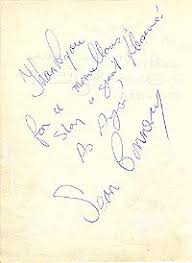 Thank you
for a marvellous
stay a great pleasure!
Sean Connery